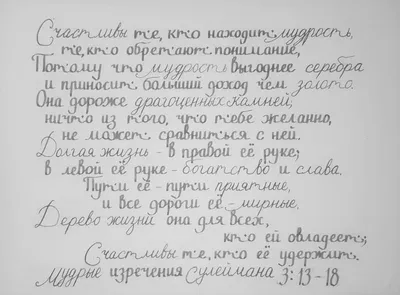 Счастливы те, кто находит мудрость,
те, кто обретают понимание,
Потому что мудрость выгоднее серебра
и приносит больший доход чем золото.
Она дороже драгоценных камней;
ничто из того, что тебе желанно,
не может сравниться с ней.
Долгая жизнь - в правой её руке;
в левой её руке - богатство и слава.
Пути её - пути приятные,
и все дороги её - мирные.
Дерево жизни она для всех,
кто ей овладеет;
Счастливы те, кто её удержит.
Мудрые изречения Сулеймана 3:13-18